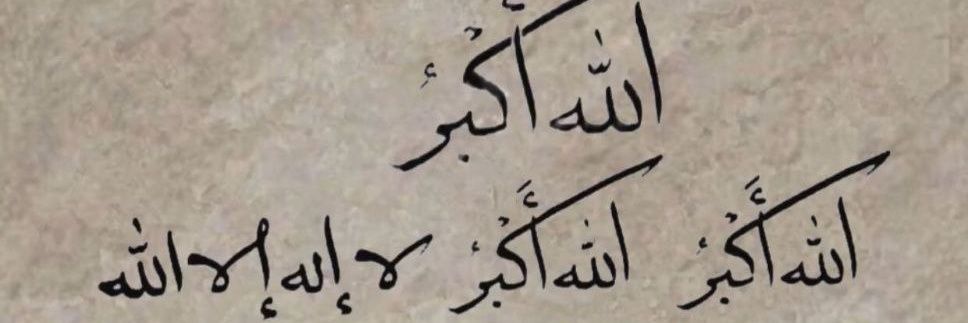 الله أكبر
الله أكبر الله أكبر لا إله إلا الله